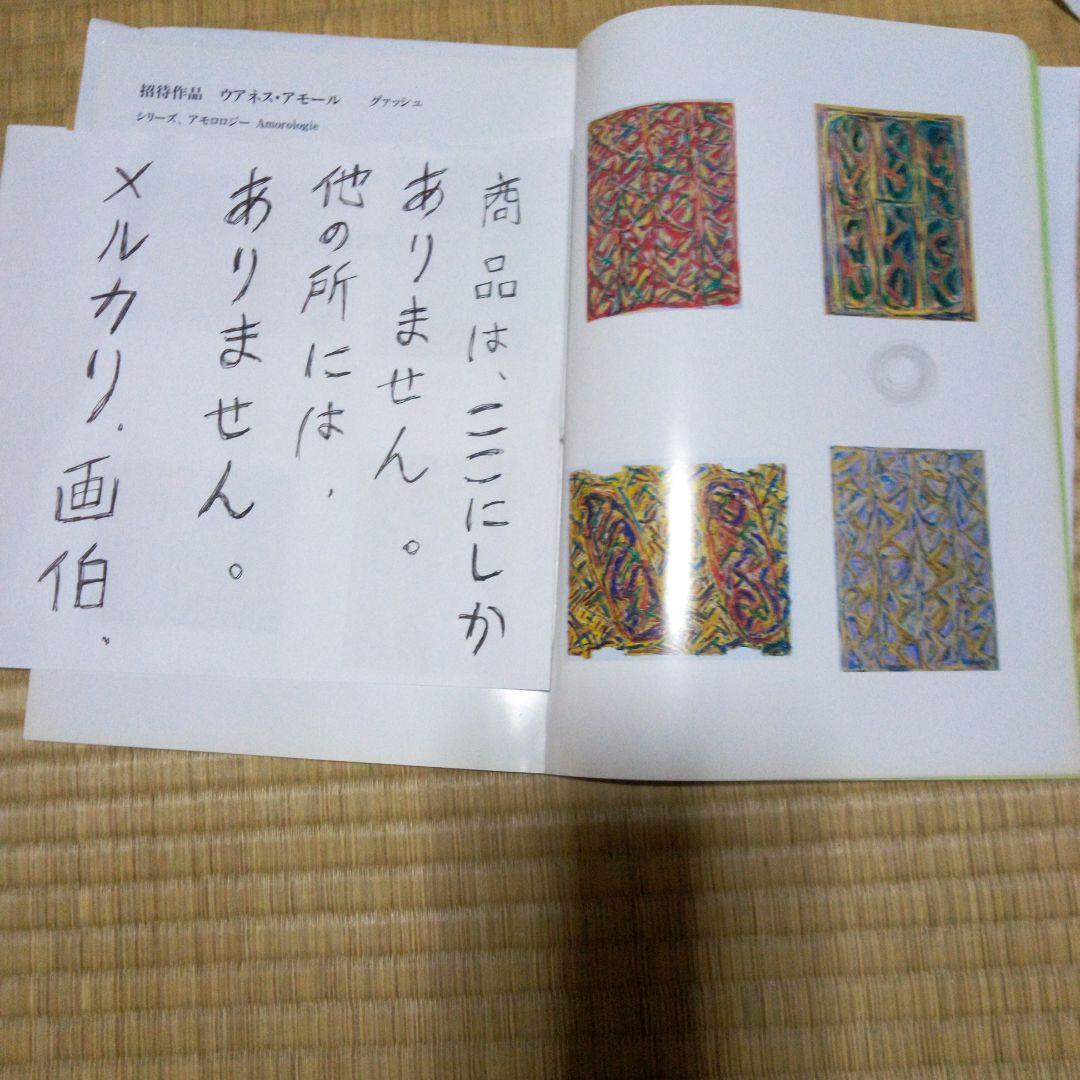 招待作品 ウアネス・アモール グァッシュ
シリーズ、アモロロジー Amorologie
商品は、ここにしか
ありません。
他の所には、
ありません。
メルカリ.画伯.